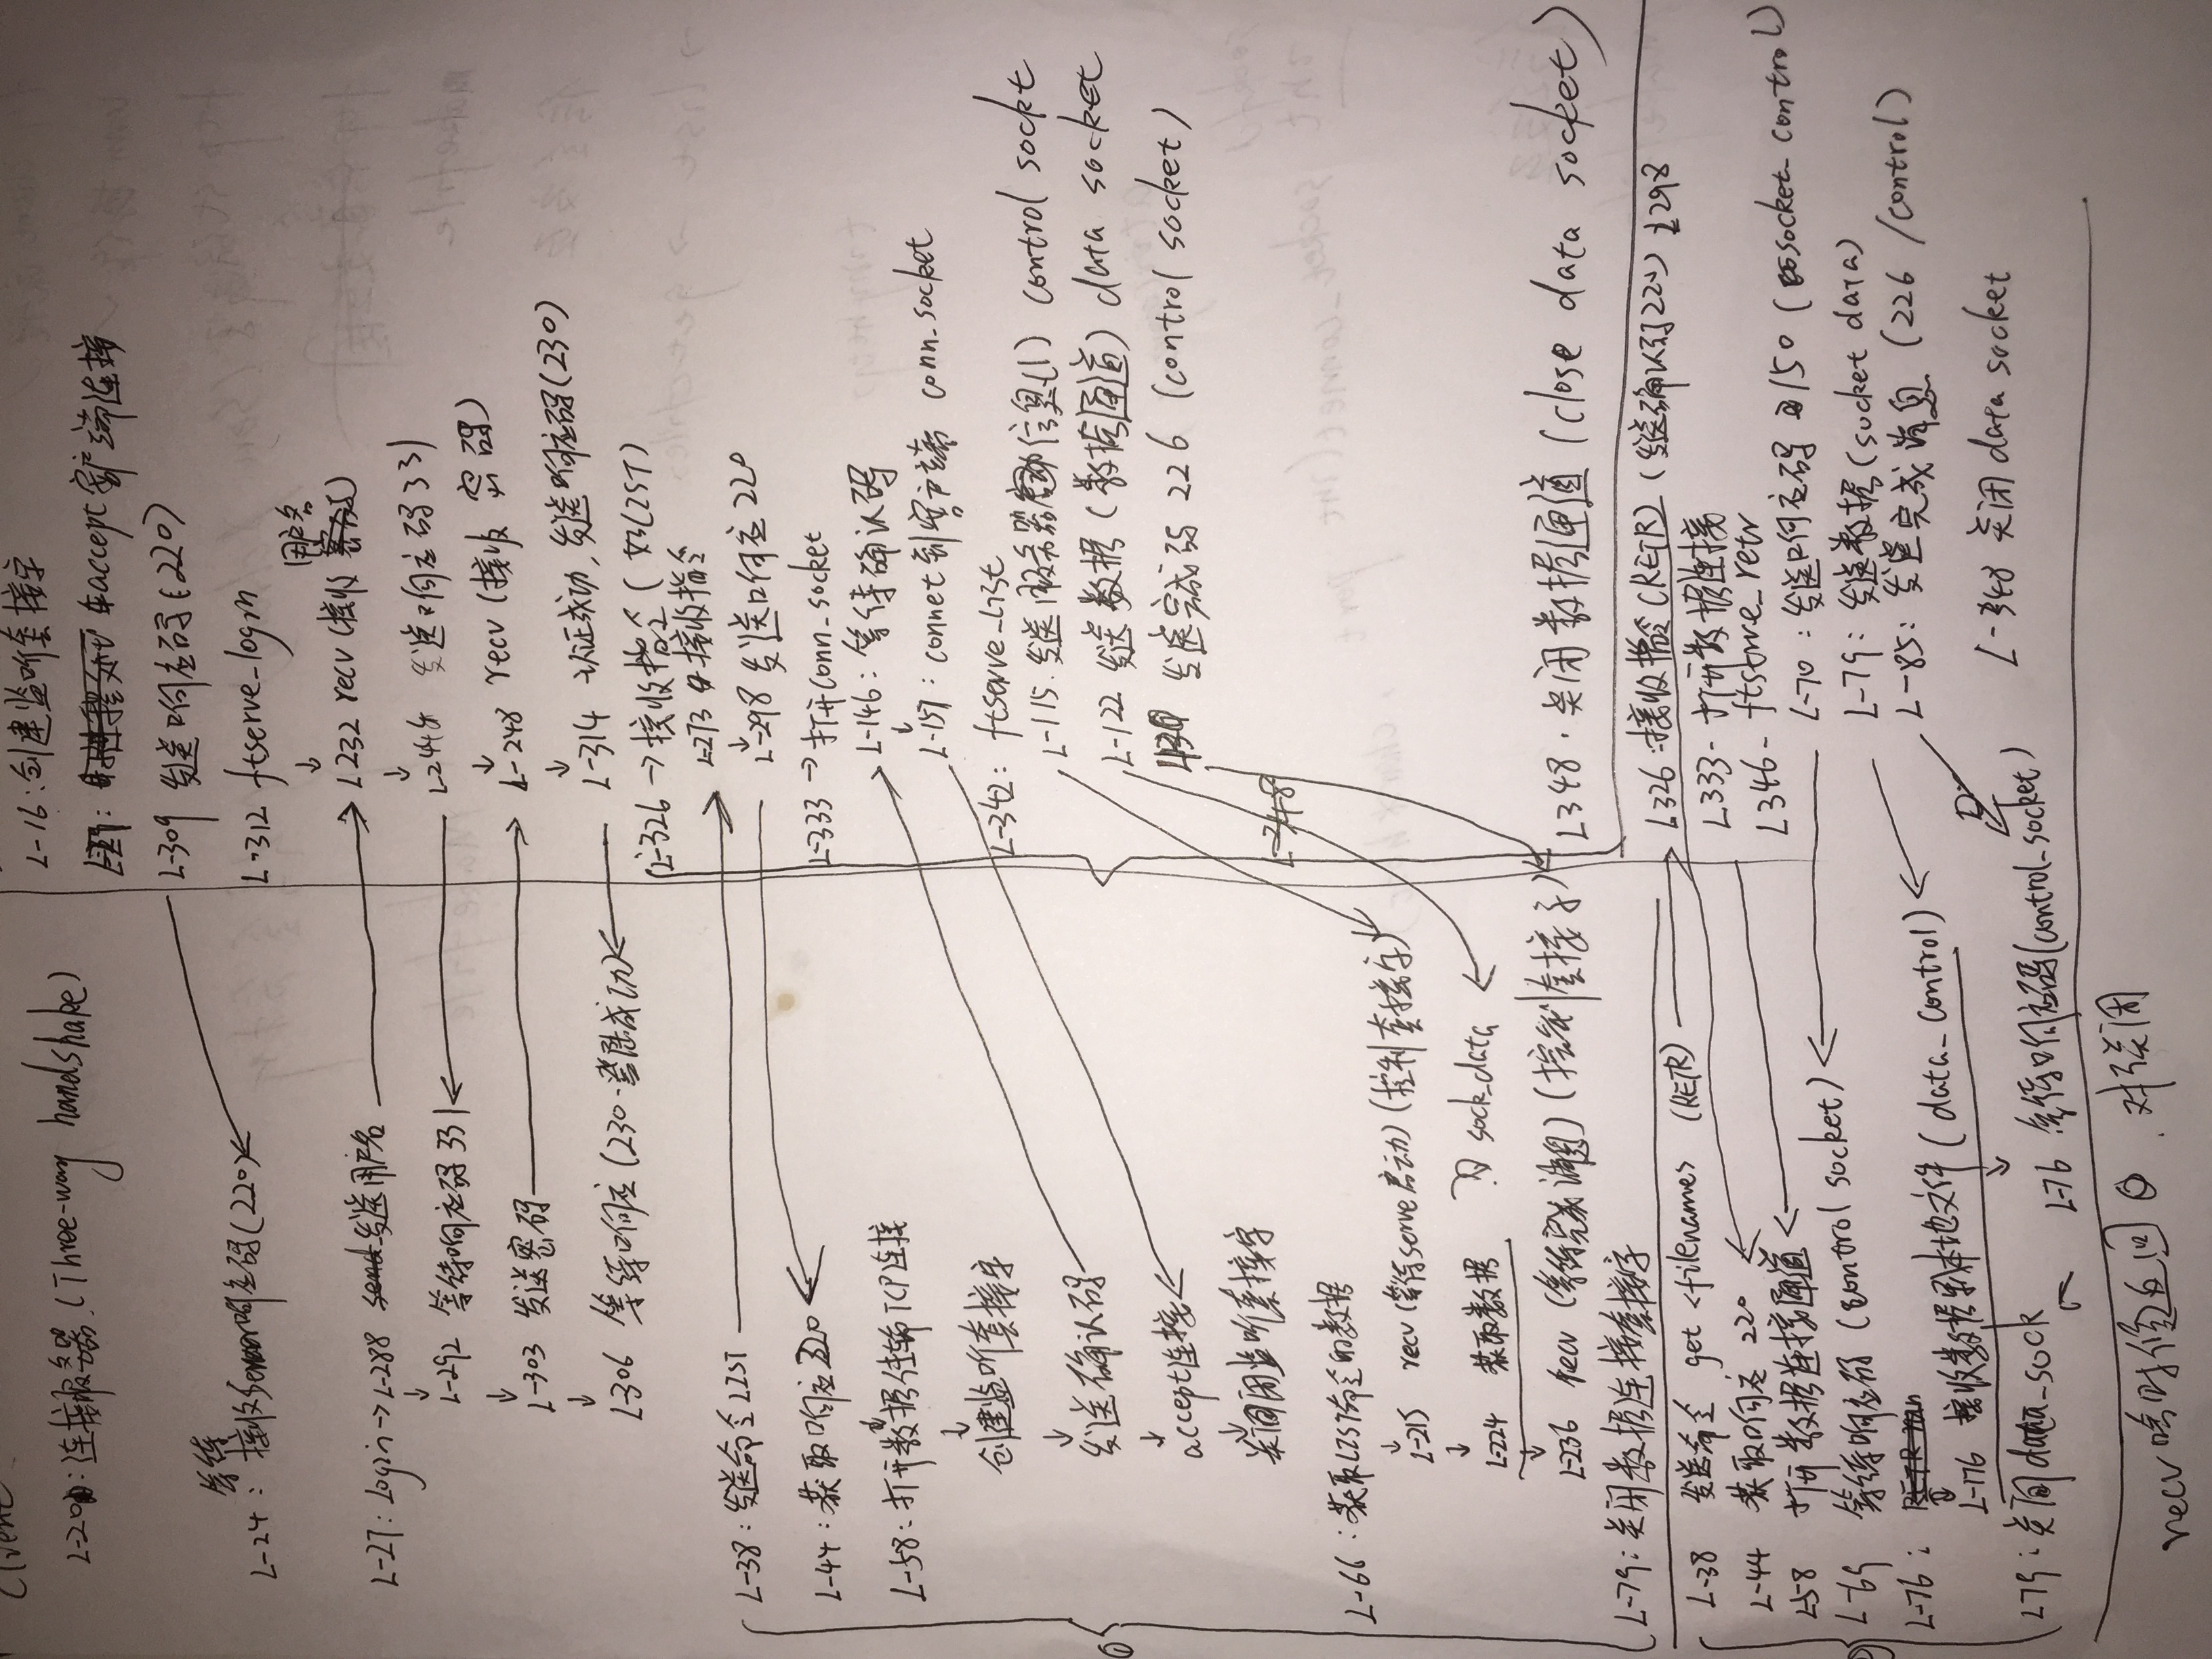 Client
L-20: 连接服务器.(Three-way handshake)
等待
L-24: 接收Server响应码(220)
L-27: Login→L-288 发送用户名
↓
L-292 等待响应码331
↓
L-303 发送密码
↓
L-306 等待响应(230.登陆成功)
L-38: 发送命令LIST
L-44: 获取响应220
L-58: 打开数据传输TCP连接
↓
创建监听套接字
↓
发送确认码
↓
accept连接
↓
关闭监听套接字
L-66: 获取LIST命令的数据
↓
L-215 recv(等待serve启动)(控制套接字)
↓
L-224 获取数据 sock_data
↓
L-236 recv(等待完成消息)(控制套接字)
L-79: 关闭数据连接套接字
L-38 发送命令 get <filename> (RETR)
L-44 获取响应 220
L58 打开数据连接通道
L-69 等待响应码 (control socket)
L-76:
L-176 接收数据到本地文件(data_control)
↓
L79: 关闭data_sock
L-76 等待响应码(control_socket)
L-16: 创建监听套接字
L-29: accept客户端连接
L-309 发送响应码(220)
L-312 ftserve_login
↓
用户名
L232 recv(接收)
↓
L-244 发送响应码331
↓
L-248 recv(接收 密码)
↓
L-314 认证成功,发送响应码(230)
L-326 → 接收指令(如LIST)
L-273 接收指令
↓
L-298 发送响应220
L-333 → 打开conn_socket
L-146: 等待确认码
↓
L-157: connet到客户端 conn_socket
L-342: ftserve_list
L-115. 发送服务器启动信息(1) control sockt
L-122 发送数据(数据通道) data socket
发送完成码 226 (control socket)
L-348
L348. 关闭数据通道 (close data socket)
L326: 接收指令(RETR) (发送确认码220) L298
L333- 打开数据连接
L346- ftserve_retr
L-70: 发送响应码 150 (socket_control)
L-79: 发送数据(socket data)
L-85: 发送完成消息 (226 /control)
L-348 关闭data socket
recv啥时候返回0. 对方关闭